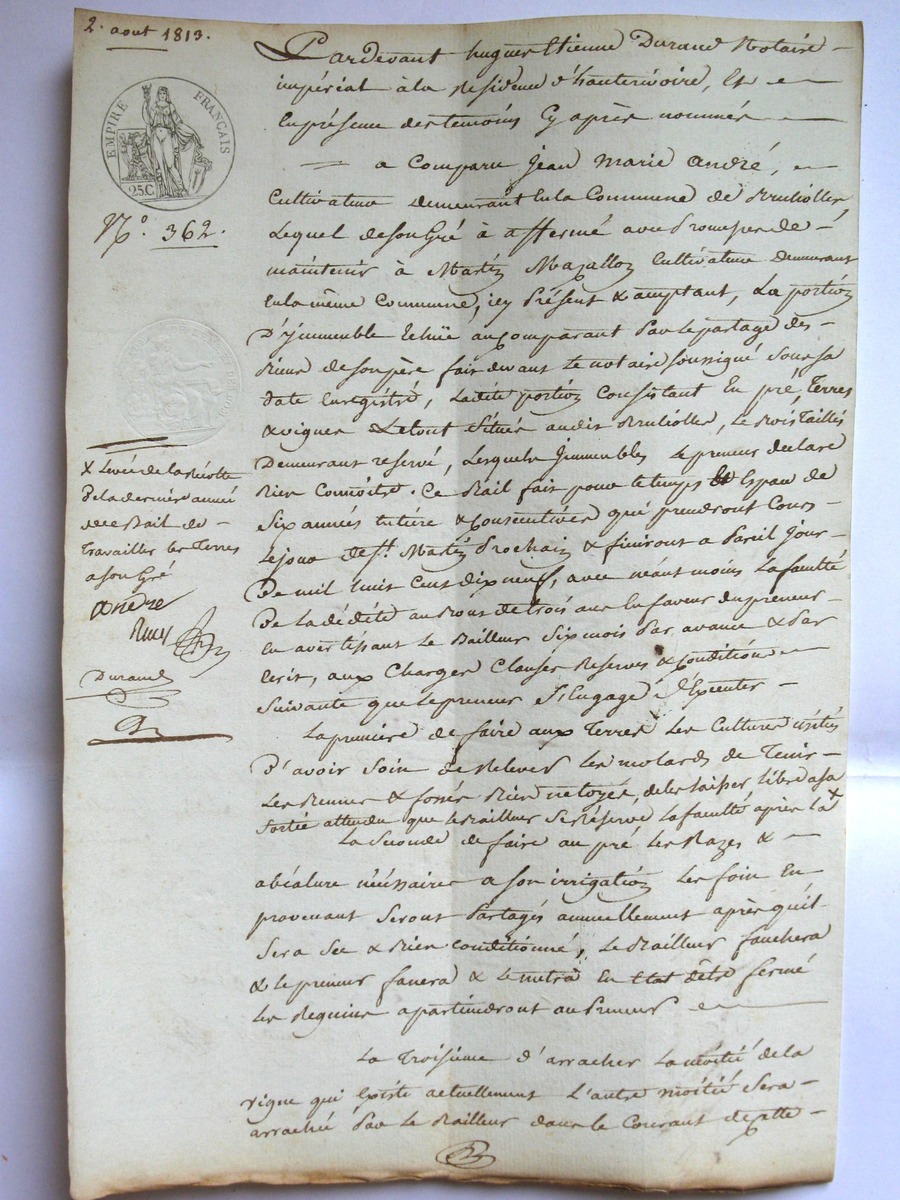 2. aout 1813.
EMPIRE FRANÇAIS
25C
N.º 362.
Pardevant hugues Etienne Durand Notaire
impérial à la Residence d'hauterivoire, Et
En présence des temoins Cy après nommés
a Comparu Jean Marie André,
Cultivateur demeurant En la Commune de Brulioles
Lequel de son Gré à affermé avec Promesse de
maintenir à Martin Cultivateur demeurant
En la même Commune, icy Présent & acceptant, La portion
D'ymmeuble Echüe au Comparant Par le partage des
Biens de son père fait devant le notaire soussigné sous sa
date Enregistré, Ladite portion Consistant En pré, Terres
& vignes Le tout Situés audit Brulioles, Le Bois Taillis
Demeurant reservé, Lesquels Jmmeubles Le preneur declare
Bien Connoitre. Ce Bail fait pour le temps & Espace de
Six années entière & Consécutives qui prendront Cours
Le jour de St. Martin Prochain & finiront a Pareil Jour
De mil huit Cent dix neuf, avec néant moins La faculté
De La dédite au Bout de trois ans En faveur du preneur
En avertissant Le Bailleur Six mois Par avance & Par
Ecrit, aux Charges Clauses Reserves & Condition
Suivante que Le preneur S'Engage d'Executer
La première de faire aux Terres Les Cultures usités
D'avoir Soin de Relever Les molards de Tenir
Les & fossés Bien netoyée, de les laisser libre a sa
Sortie attendu que le Bailleur Se Réserve La faculté après la x
La Seconde de faire au pré Les Razes &
nécessaires a Son irrigation Les foin En
provenant Seront Partagés annuellement après qu'il
Sera Sec & Bien Conditionné, Le Bailleur fauchera
& Le preneur fanera & Le metra En Etat d'être fermé
Les Regains apartiendront au Preneur
La Troisième d'arracher La moitié de la
vigne qui Existe actuellement L'autre moitié Sera
arrachée Par Le Bailleur dans le Courant de cette
x Levée de la Récolte
De la dernière année
du Bail de
Travailler les Terres
a son Gré
andré
Durand